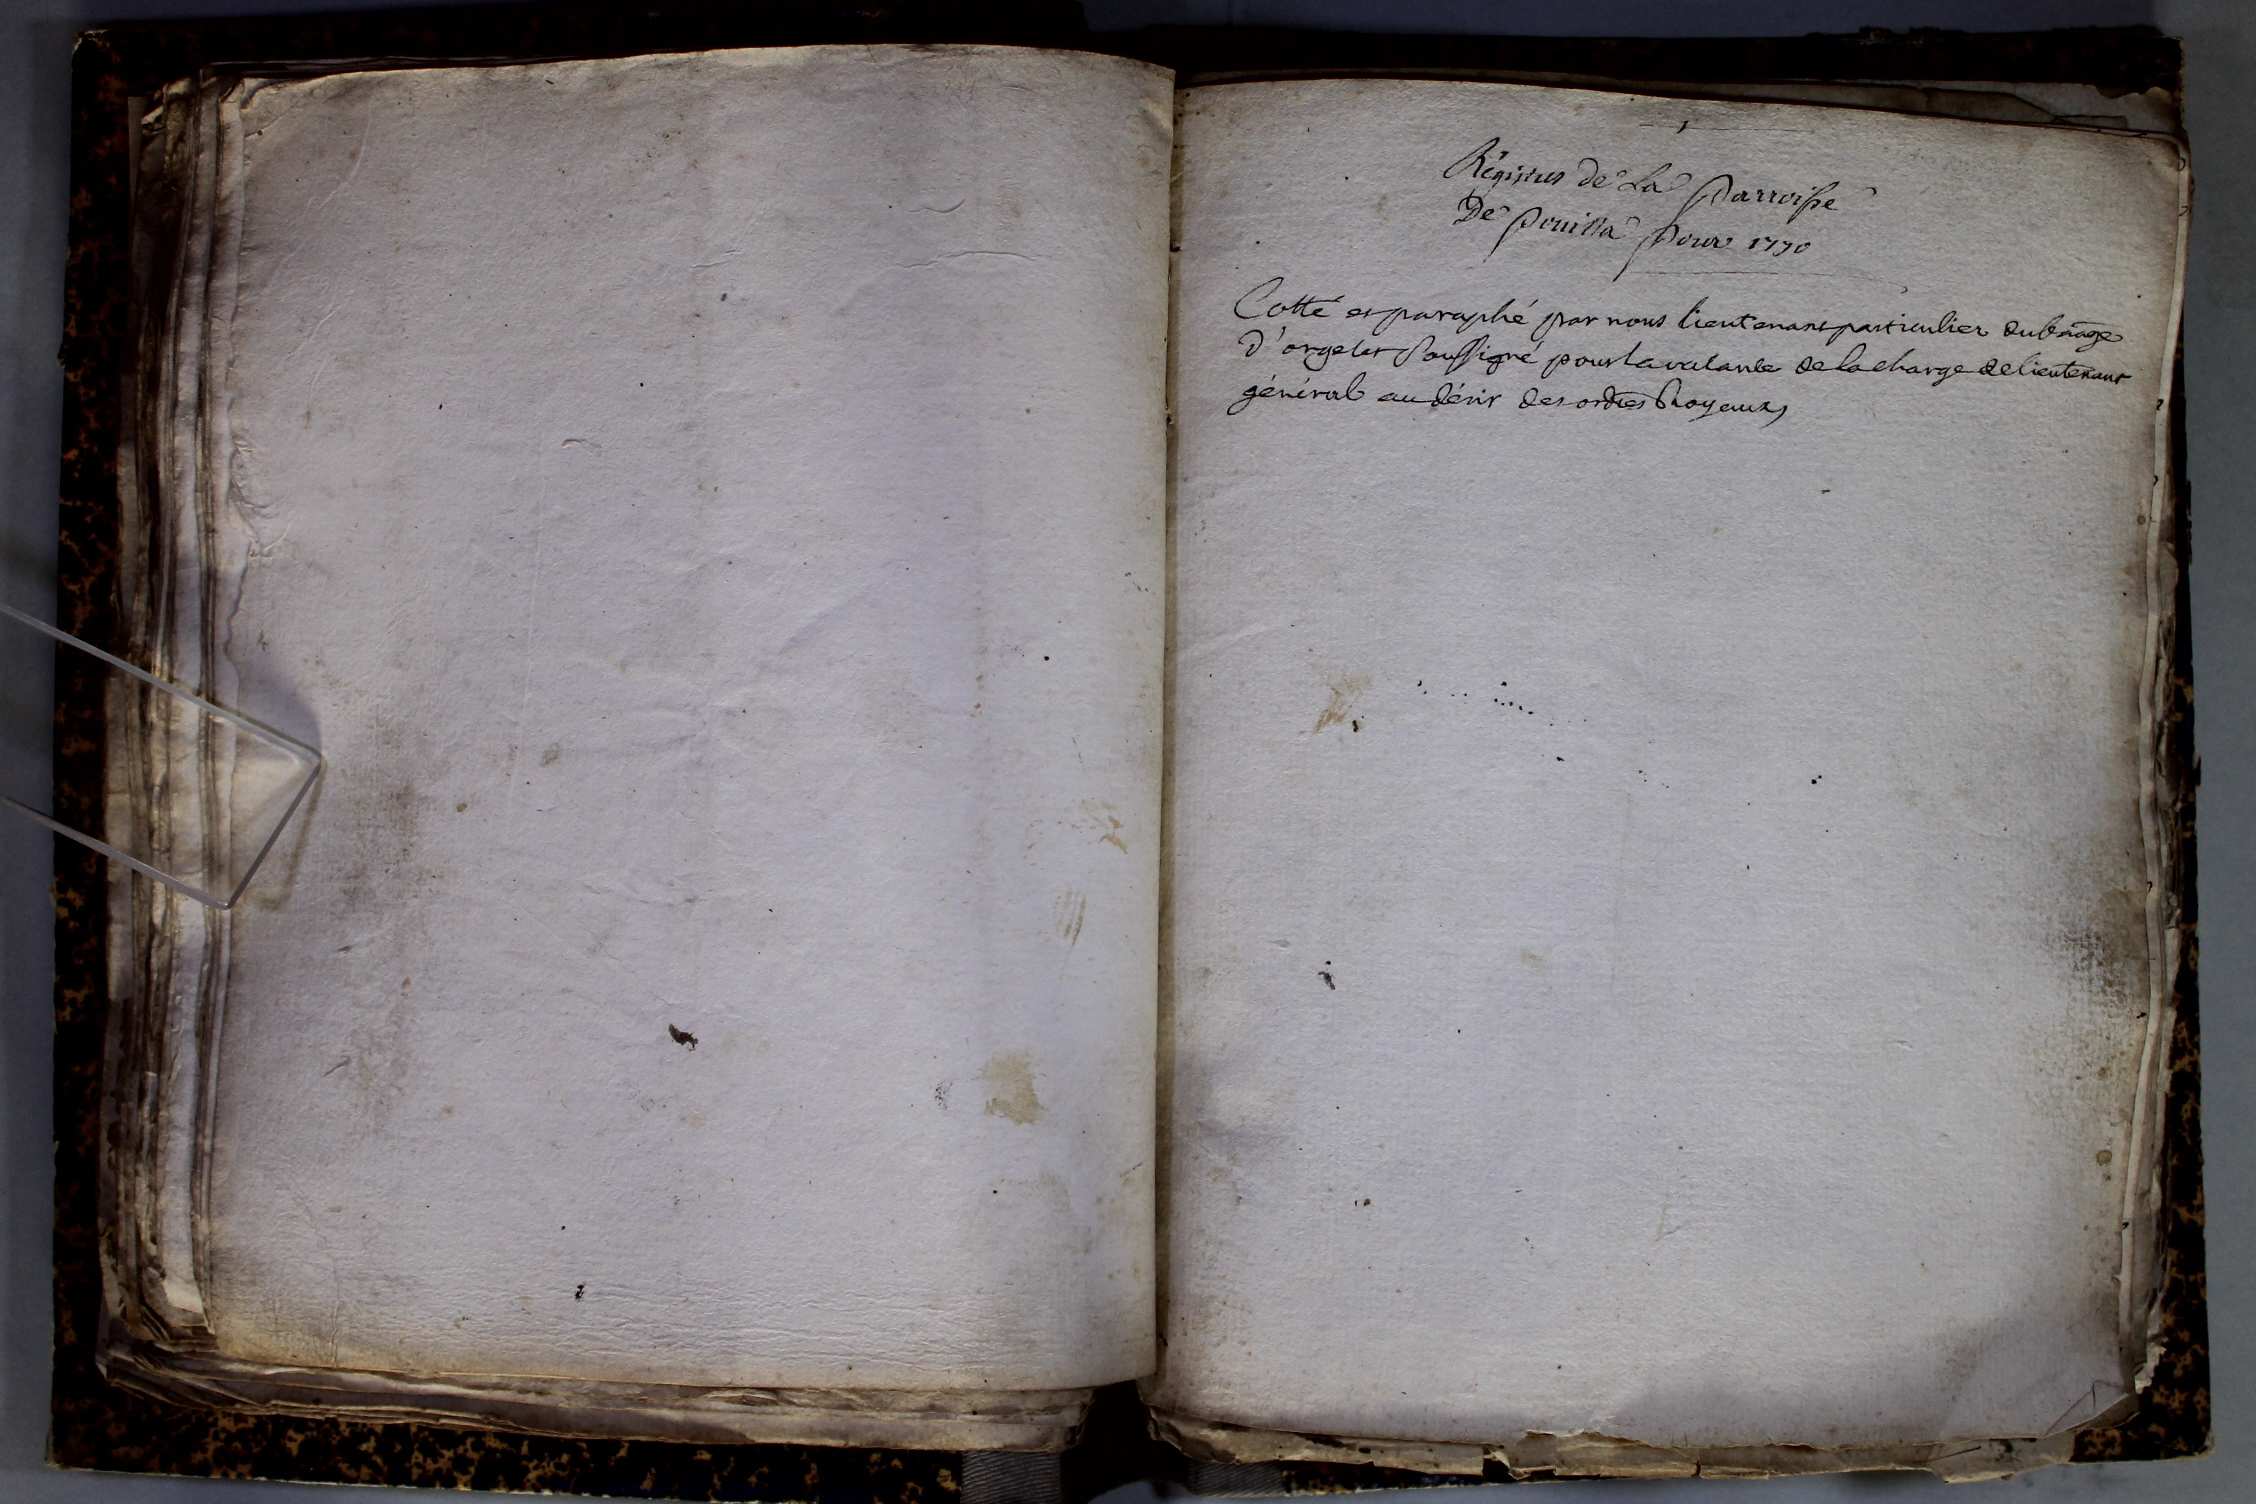 1
Régistres de La Parroisse
De Pouilla Pour 1770
Cotté et paraphé par nous lieutenant particulier du bãage
d'orgelet soussigné pour la vacance de la charge de lieutenant
général au désir des ordres royaux